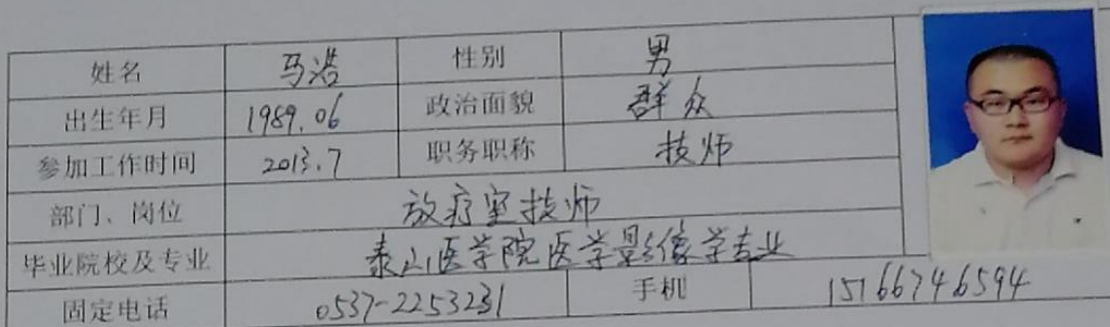 姓名 马浩 性别 男
出生年月 1989.06 政治面貌 群众
参加工作时间 2013.7 职务职称 技师
部门、岗位 放疗室技师
毕业院校及专业 泰山医学院医学影像学专业
固定电话 0537-2253231 手机 15166746594